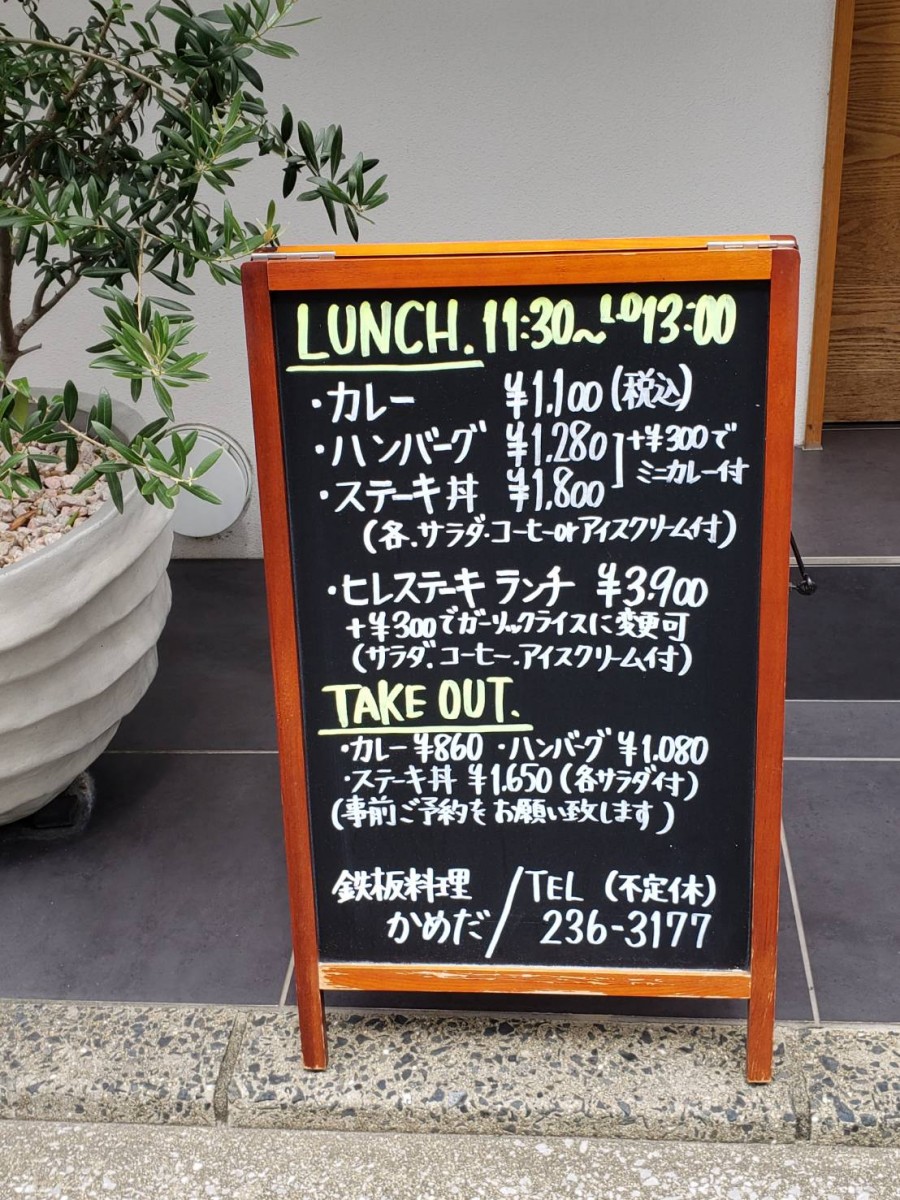 LUNCH. 11:30~L.O13:00
・カレー ¥1,100(税込)
・ハンバーグ ¥1,280
・ステーキ丼 ¥1,800
+¥300で
ミニカレー付
(各.サラダ.コーヒーorアイスクリーム付)
・ヒレステーキ ランチ ¥3,900
+¥300でガーリックライスに変更可
(サラダ.コーヒー.アイスクリーム付)
TAKE OUT.
・カレー ¥860 ・ハンバーグ ¥1.080
・ステーキ丼 ¥1,650 (各サラダ付)
(事前ご予約もお願い致します)
鉄板料理
かめだ
/
TEL (不定休)
236-3177